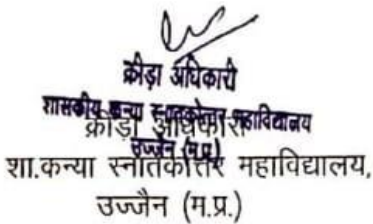 क्रीड़ा अधिकारी
शासकीय कन्या स्नातकोत्तर महाविद्यालय
उज्जैन (म.प्र.)
क्रीड़ा अधिकारी
शा.कन्या स्नातकोत्तर महाविद्यालय,
उज्जैन (म.प्र.)